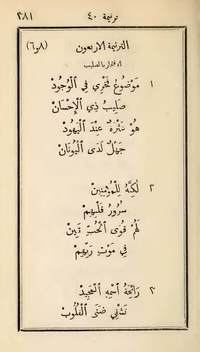 ترنيمة ٤٠ ٣٨١
الترنيمة الاربعون (٨و٦)
افتخار بالصليب
١ مَوْضُوعُ فَخْرِي فِي ٱلْوُجُودْ
صَلِيبُ ذِي ٱلْإِحْسَانْ
هُوْ عَثْرَةٌ عِنْدَ ٱلْيَهُودْ
جَهْلٌ لَدَى ٱلْيُونَانْ
٢ لَكِنَّهُ لِلْمُؤْمِنِينْ
سُرُورُ قَلْبِهِمْ
لَهُمْ قُوَى ٱلْحُبِّ تَبِينْ
فِي مَوْتِ رَبِّهِمْ
٣ رَائِحَةُ ٱسْمِهِ ٱلْمَجِيدْ
تَشْفِي ضَنَى ٱلْقُلُوبْ